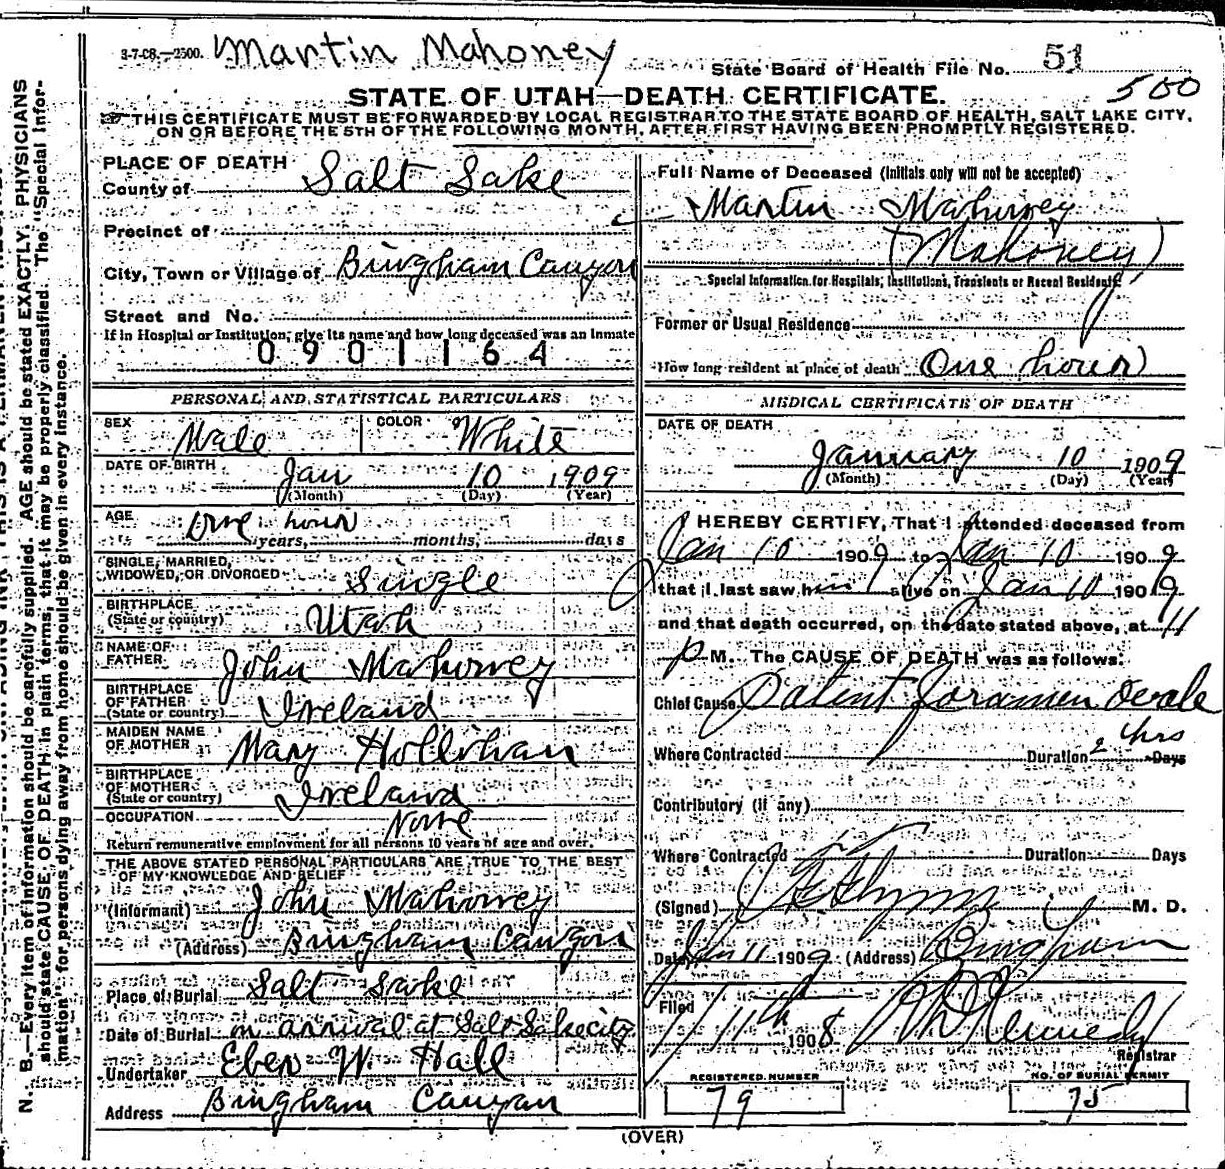 3-7-08.—2500. Martin Mahoney
State Board of Health File No. 51
500
STATE OF UTAH—DEATH CERTIFICATE.
THIS CERTIFICATE MUST BE FORWARDED BY LOCAL REGISTRAR TO THE STATE BOARD OF HEALTH, SALT LAKE CITY,
ON OR BEFORE THE 5TH OF THE FOLLOWING MONTH, AFTER FIRST HAVING BEEN PROMPTLY REGISTERED.
PLACE OF DEATH
County of Salt Lake
Precinct of
City, Town or Village of Bingham Canyon
Street and No.
If in Hospital or Institution, give its name and how long deceased was an inmate
0901164
PERSONAL AND STATISTICAL PARTICULARS
SEX Male COLOR White
DATE OF BIRTH Jan 10 1909
(Month) (Day) (Year)
AGE One hour
years, months, days
SINGLE, MARRIED,
WIDOWED, OR DIVORCED Single
BIRTHPLACE
(State or country) Utah
NAME OF
FATHER John Mahoney
BIRTHPLACE
OF FATHER
(State or country) Ireland
MAIDEN NAME
OF MOTHER Mary Hollihan
BIRTHPLACE
OF MOTHER
(State or country) Ireland
OCCUPATION None
Return remunerative employment for all persons 10 years of age and over.
THE ABOVE STATED PERSONAL PARTICULARS ARE TRUE TO THE BEST
OF MY KNOWLEDGE AND BELIEF
(Informant) John Mahoney
(Address) Bingham Canyon
Place of Burial Salt Lake
Date of Burial on arrival at Salt Lake city
Undertaker Eber W. Hall
Address Bingham Canyon
Full Name of Deceased (Initials only will not be accepted)
Martin Mahoney
(Mahoney)
Special Information for Hospitals, Institutions, Transients or Recent Residents
Former or Usual Residence
How long resident at place of death One hour
MEDICAL CERTIFICATE OF DEATH
DATE OF DEATH
January 10 1909
(Month) (Day) (Year)
I HEREBY CERTIFY, That I attended deceased from
Jan 10 1909 to Jan 10 1909
that I last saw him alive on Jan 10 1909
and that death occurred, on the date stated above, at 11
P M. The CAUSE OF DEATH was as follows:
Chief Cause Patent Foramen Ovale
Where Contracted Duration 2 hrs Days
Contributory (if any)
Where Contracted Duration Days
(Signed) M. D.
Date Jan 11 1909 (Address) Bingham
Filed
1/11th 1908 Kennedy
Registrar
REGISTERED NUMBER
79
NO. OF BURIAL PERMIT
75
(OVER)
N. B.—Every item of information should be carefully supplied. AGE should be stated EXACTLY. PHYSICIANS
should state CAUSE OF DEATH in plain terms, that it may be properly classified. The "Special Infor-
mation" for persons dying away from home should be given in every instance.